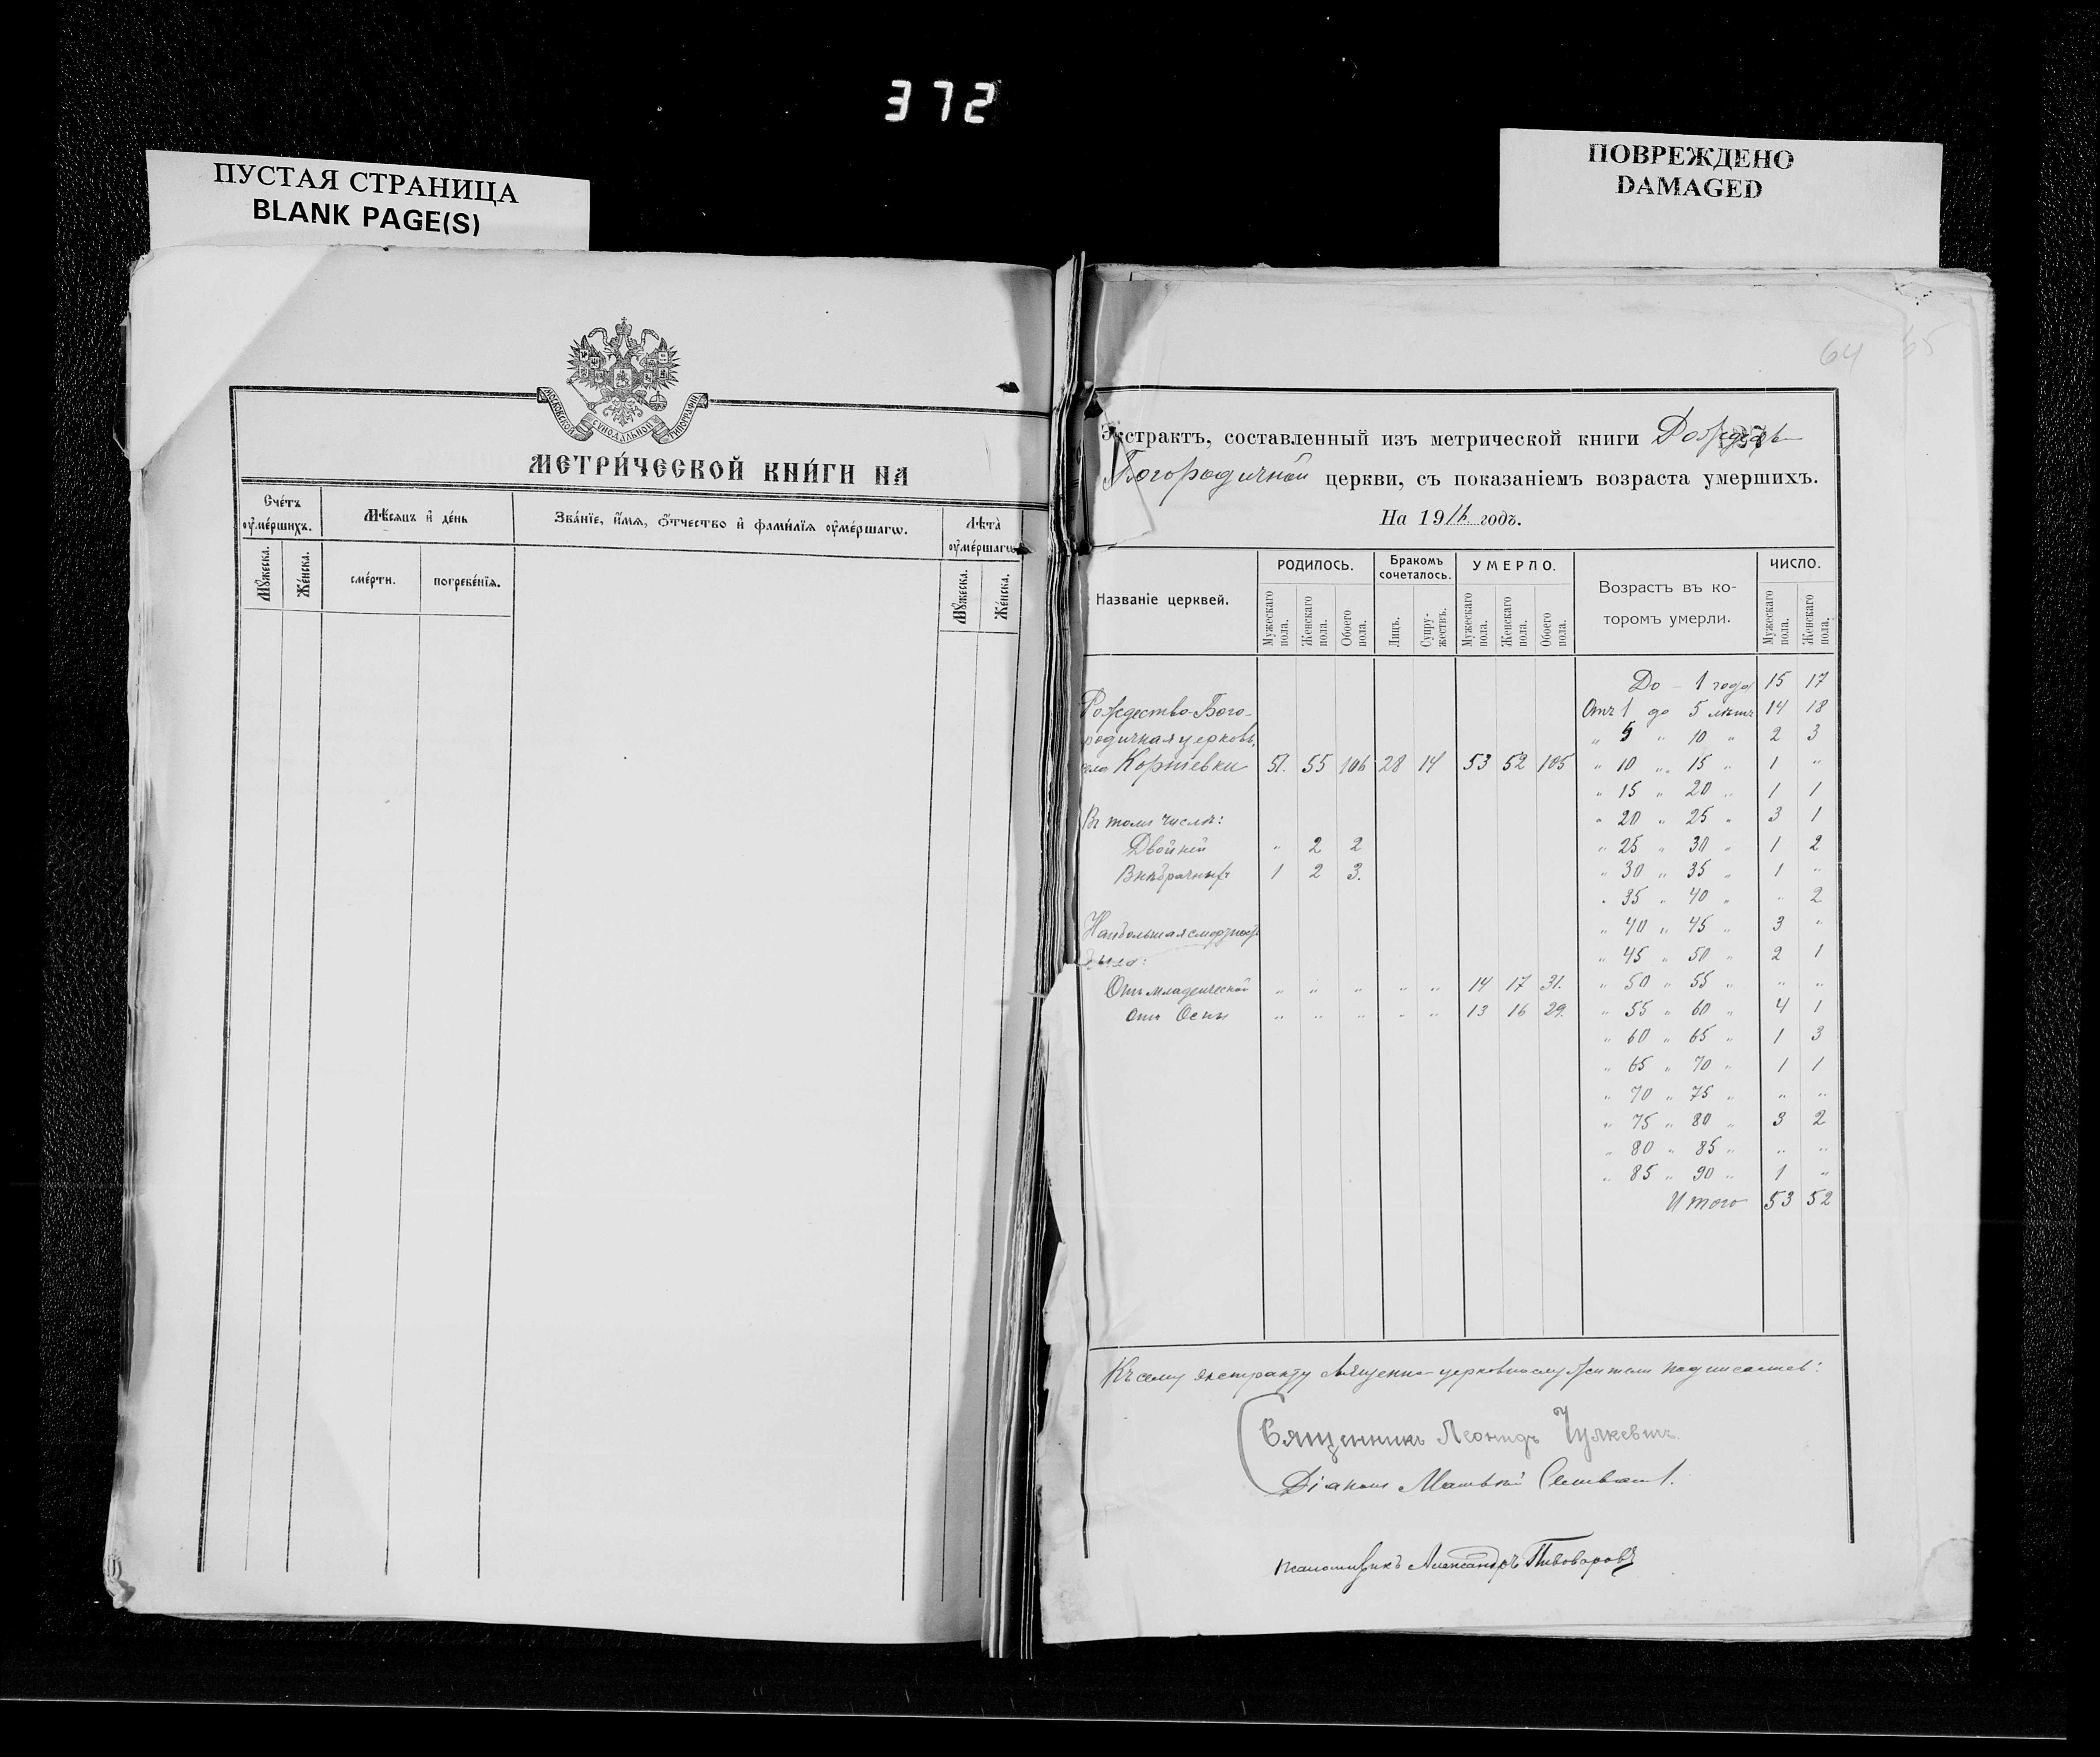 372
ПУСТАЯ СТРАНИЦА
BLANK PAGE(S)
ПОВРЕЖДЕНО
DAMAGED
МОСКОВСКОЙ СУНОДАЛЬНОЙ ТИПОГРАФІИ
МЕТРИ́ЧЕСКОЙ КНИ́ГИ НА
Сче́тъ ᲂу҆ме́ршихъ.
Мѣ́сяцъ и҆ де́нь
Зва́нїе, и҆́мѧ, ѻ҆́тчество и҆ фамѝлїѧ ᲂу҆ме́ршагѡ.
Лѣ́та ᲂу҆ме́ршагѡ
Мꙋ́жеска.
Же́нска.
сме́рти.
погребе́нїѧ.
Мꙋ́жеска.
Же́нска.
64 65
Экстрактъ, составленный изъ метрической книги Рождество-
Богородичной церкви, съ показаніемъ возраста умершихъ.
На 1916 годъ.
Названіе церквей.
РОДИЛОСЬ.
Бракомъ сочеталось.
УМЕРЛО.
Возрастъ въ которомъ умерли.
ЧИСЛО.
Мужескаго пола. Женскаго пола. Обоего пола. Лицъ. Супружествъ. Мужескаго пола. Женскаго пола. Обоего пола. Мужескаго пола. Женскаго пола.
До - 1 года 15 17
Рождество-Бого- Отъ 1 до 5 лѣтъ 14 18
родичная церковь, " 5 " 10 " 2 3
села Корнѣевки 51. 55 106 28 14 53 52 105 " 10 " 15 " 1 "
" 15 " 20 " 1 1
Въ томъ числѣ: " 20 " 25 " 3 1
Двойней " 2 2 " 25 " 30 " 1 2
Внѣбрачныхъ 1 2 3. " 30 " 35 " 1 "
" 35 " 40 " " 2
Наибольшая смертность " 40 " 45 " 3 "
была: " 45 " 50 " 2 1
Отъ младенческой " " " " " 14 17 31. " 50 " 55 " " "
отъ Оспы " " " " " 13 16 29. " 55 " 60 " 4 1
" 60 " 65 " 1 3
" 65 " 70 " 1 1
" 70 " 75 " " "
" 75 " 80 " 3 2
" 80 " 85 " " "
" 85 " 90 " 1 "
Итого 53 52
Къ сему экстракту священно-церковнослужители подписались:
Священникъ Леонидъ Чулкевичъ
Діаконъ Матвѣй
псаломщикъ Александръ Пивоваровъ